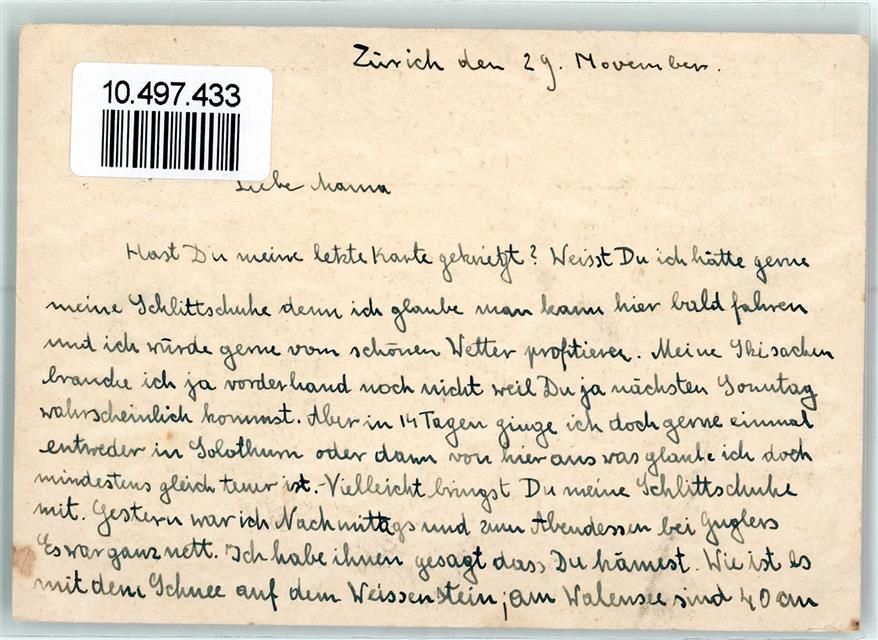 Zürich den 29. November.
10.497.433
Liebe Mama
Hast Du meine letzte Karte gekriegt? Weisst Du ich hätte gerne
meine Schlittschuhe denn ich glaube man kann hier bald fahren
und ich würde gerne vom schönen Wetter profitieren. Meine Skisachen
brauche ich ja vorderhand noch nicht weil Du ja nächsten Sonntag
wahrscheinlich kommst. Aber in 14 Tagen ginge ich doch gerne einmal
entweder in Solothurn oder dann von hier aus was glaube ich doch
mindestens gleich teuer ist. - Vielleicht bringst Du meine Schlittschuhe
mit. Gestern war ich Nachmittags und zum Abendessen bei Guglers
Es war ganz nett. Ich habe ihnen gesagt dass Du kämest. Wie ist es
mit dem Schnee auf dem Weissenstein; am Walensee sind 40 cm